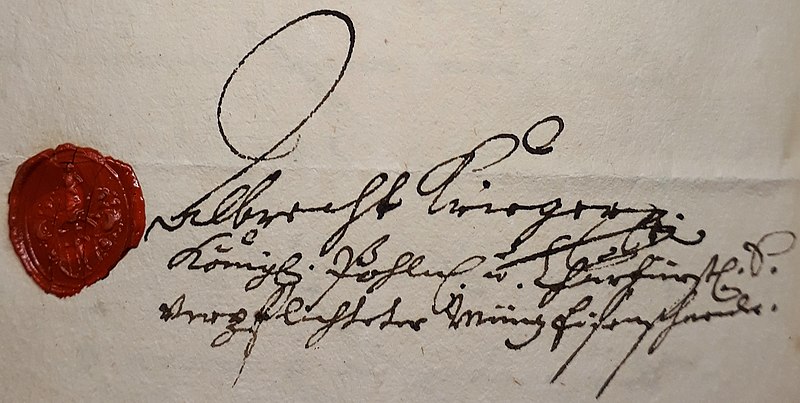 Albrecht Krieger
Königl. Pohln. u. Churfürstl. S.
verpflichteter Müntz Eisenschneider.